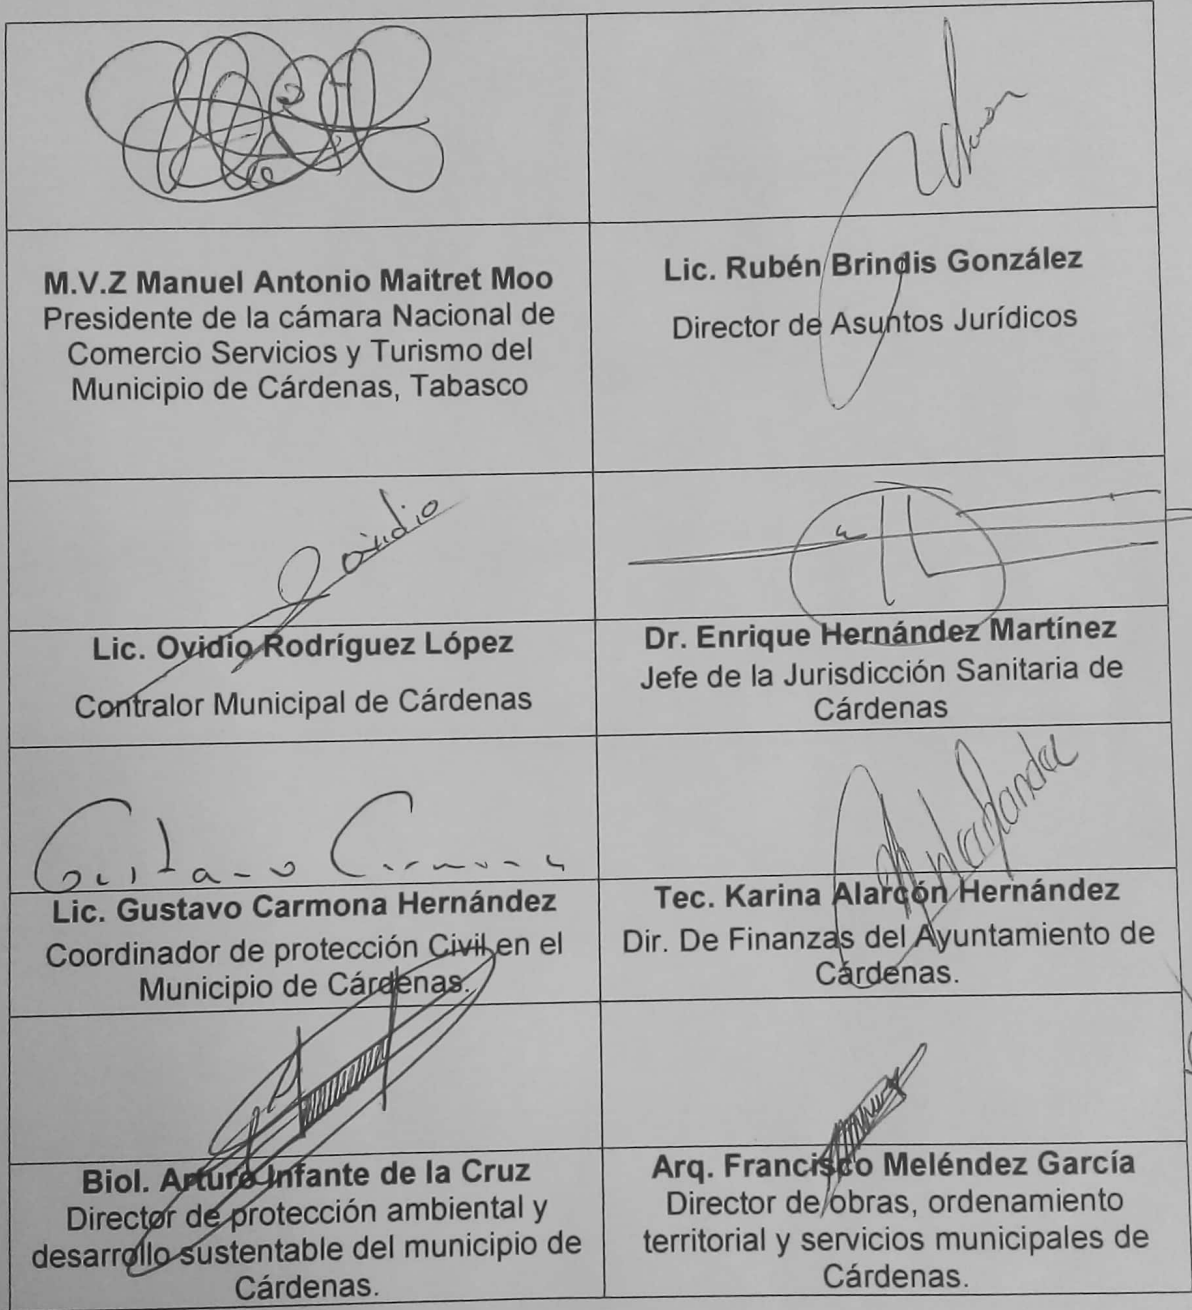 M.V.Z Manuel Antonio Maitret Moo
Presidente de la cámara Nacional de
Comercio Servicios y Turismo del
Municipio de Cárdenas, Tabasco
Lic. Rubén Brindis González
Director de Asuntos Jurídicos
Ovidio
Lic. Ovidio Rodríguez López
Contralor Municipal de Cárdenas
Dr. Enrique Hernández Martínez
Jefe de la Jurisdicción Sanitaria de
Cárdenas
Gustavo Carmona
Lic. Gustavo Carmona Hernández
Coordinador de protección Civil en el
Municipio de Cárdenas.
Tec. Karina Alarcón Hernández
Dir. De Finanzas del Ayuntamiento de
Cárdenas.
Biol. Arturo Infante de la Cruz
Director de protección ambiental y
desarrollo sustentable del municipio de
Cárdenas.
Arq. Francisco Meléndez García
Director de obras, ordenamiento
territorial y servicios municipales de
Cárdenas.